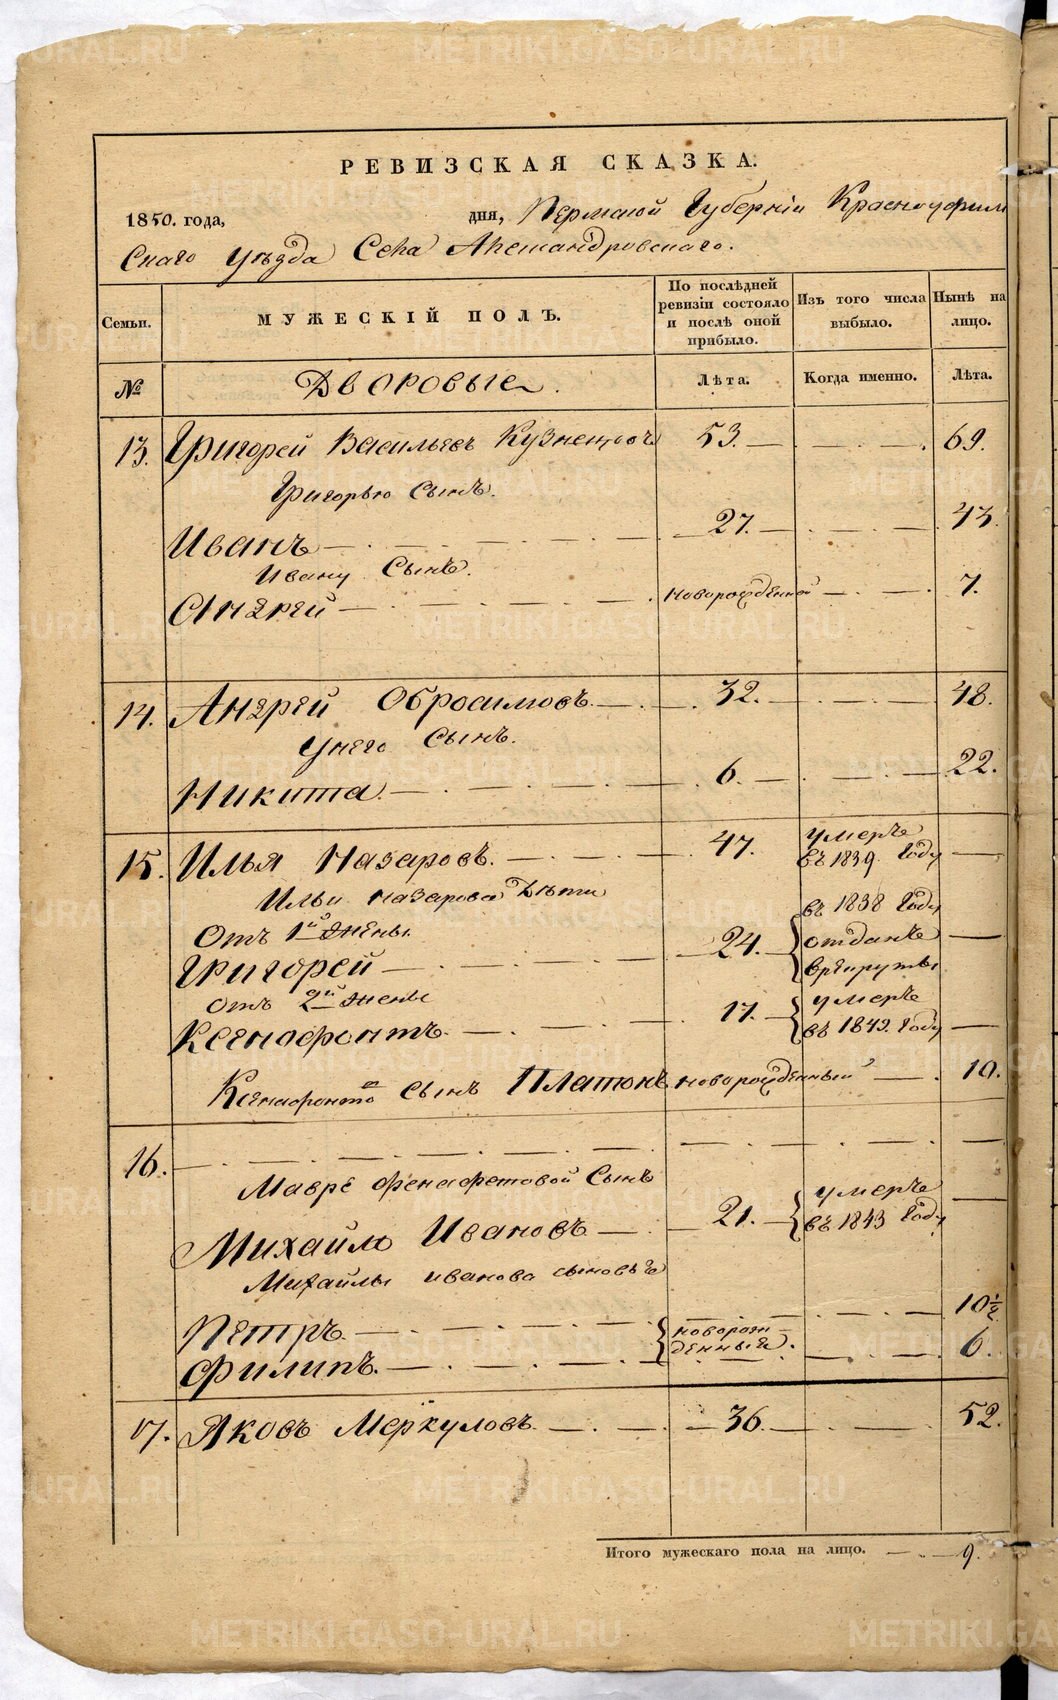 РЕВИЗСКАЯ СКАЗКА.
1850. года, дня, Пермской Губерніи Красноуфим
скаго уѣзда Села Александровскаго.
Семьи. МУЖЕСКІЙ ПОЛЪ. По послѣдней ревизіи состояло и послѣ оной прибыло. Изъ того числа выбыло. Нынѣ на лицо.
№ Дворовые. Лѣта. Когда именно. Лѣта.
13. Григорей Васильевъ Кузнецовъ 53. 69.
Григорью Сынъ.
Иванъ 27. 43.
Ивану Сынъ.
Андрей новорожденной 7.
14. Андрей Обросимовъ. 32. 48.
У него Сынъ.
Никита. 6. 22.
15. Илья Назаровъ. 47. умеръ въ 1839 Году
Ильи Назарова Дѣти
Отъ 1й жены.
Григорей 24. въ 1838 Году отданъ врекруты
отъ 2й жены
Ксенофонтъ. 17. умеръ въ 1842. Году
Ксенофонта сынъ Платонъ новорожденный 10.
16.
Мавре Фенафетовой Сынъ
Михайло Ивановъ 21. умеръ въ 1843 Году
Михайлы Иванова сыновья
Петръ. новорож 10 1/2
Филипъ. денныя. 6.
17. Яковъ Меркуловъ. 36. 52.
Итого мужескаго пола на лицо. 9.
METRIKI.GASO-URAL.RU